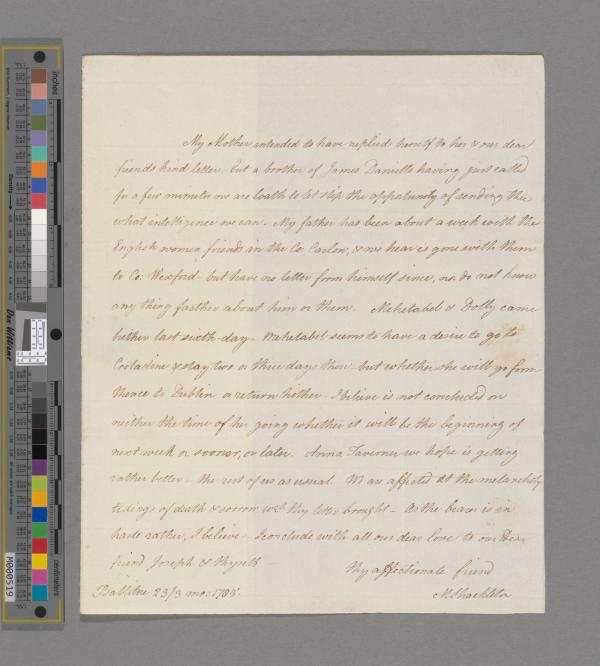 My Mother intended to have replied herself to her & our dear
friends kind letter, but a brother of James Daniells having just called
for a few minutes we are loath to let slip the oppertunity of sending thee
what intelligence we can. My father has been about a week with the
English women friends in the Co. Carlow, & we hear is gone with them
to Co: Wexford but have no letter from himself since, nor do not know
any thing farther about him or them. Mehetabel & Dolly came
hither last sixth-day. Mehetabel seems to have a desire to go to
& stay two or three days there but whether she will go from
thence to Dublin or return hither I believe is not concluded on
neither the time of her going whether it will be the beginning of
next week or sooner, or later. Anna Taverner we hope is getting
rather better - the rest of us as usual. We are affected at the melancholy
tidings of death & sorrow wch. thy letter brought - As the bearer is in
haste rather, I believe I conclude with all our dear love to our Dear
friend Joseph & thyself -
thy affectionate friend
MShackleton
Ballitore 23/3 mo: 1785.
inches
centimeters
Don Williams
M000519